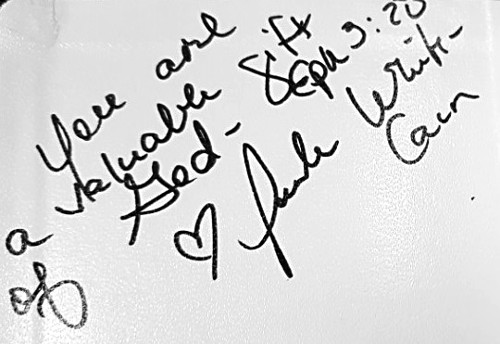 You are
a valuable gift
of God - Eph 3:20
♡ Paula White-
Cain